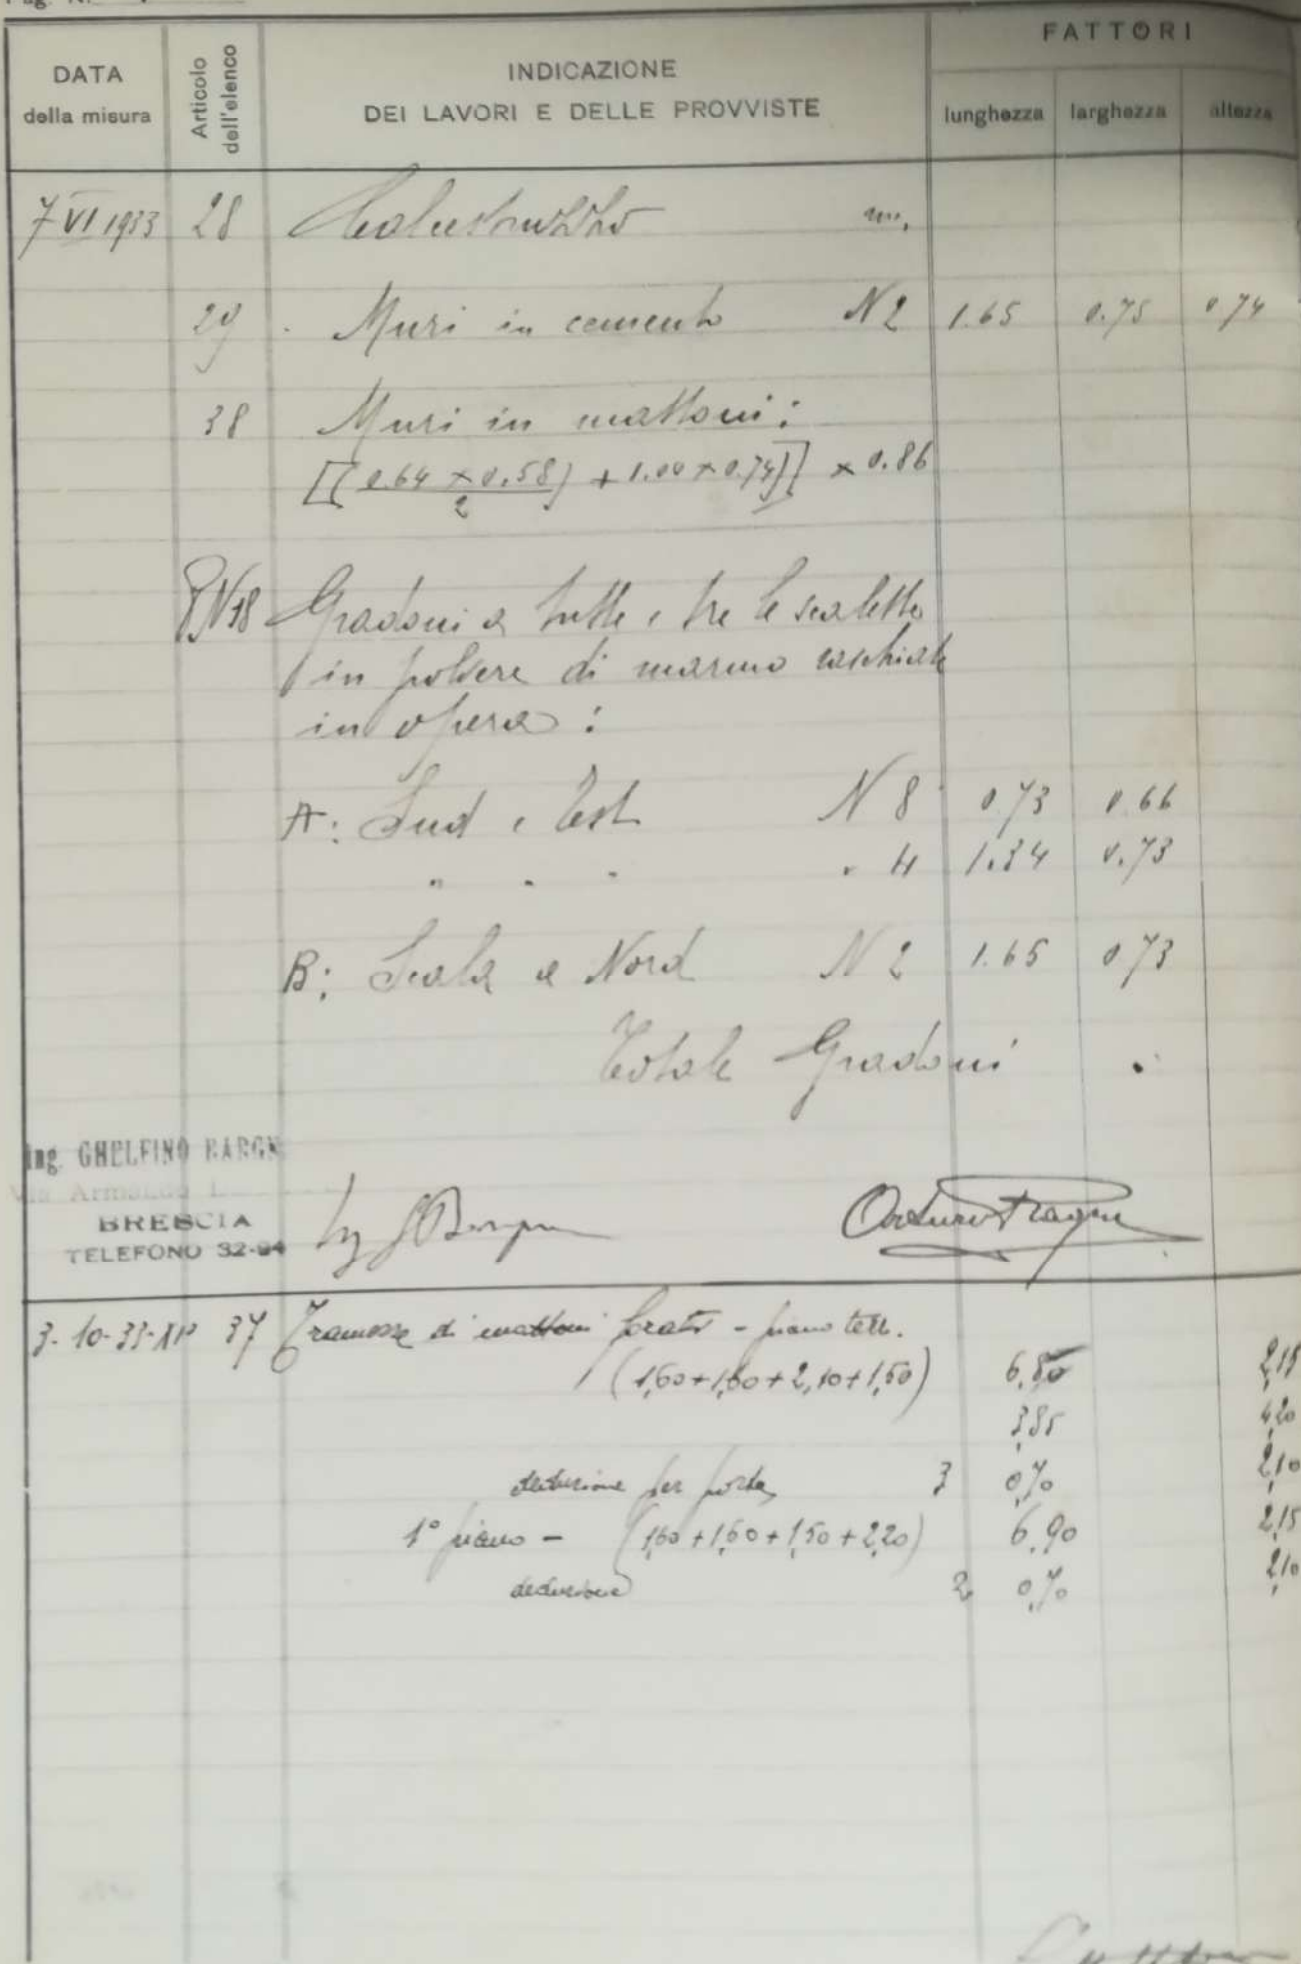 Pag. N.
FATTORI
DATA della misura
Articolo dell'elenco
INDICAZIONE
DEI LAVORI E DELLE PROVVISTE
lunghezza larghezza altezza
7 VI 1933 28 Calcestruzzo m.
29 Muri in cemento N 2 1.65 0.75 0.74
38 Muri in mattoni:
[(0.64 × 0.58)/2 + 1.00 × 0.74)] × 0.86
PN 18 Gradoni a tutte e tre le scalette
in polvere di marmo raschiate
in opera:
A: Sud e Est N 8 0.73 0.66
" " " " 4 1.34 0.73
B: Scala a Nord N 2 1.65 0.73
Totale Gradoni
Ing. GHELFINO BARGN
Via Arnaldo
BRESCIA
TELEFONO 32-94
Ing
3-10-33-XI° 37 Tramezze di mattoni forati - piano terr.
(1,60+1,60+2,10+1,50) 6,80 2,15
3,85 4,20
deduzione per porte 3 0,70 2,10
1° piano - (1,60+1,60+1,50+2,20) 6,90 2,15
deduzione 2 0,70 2,10